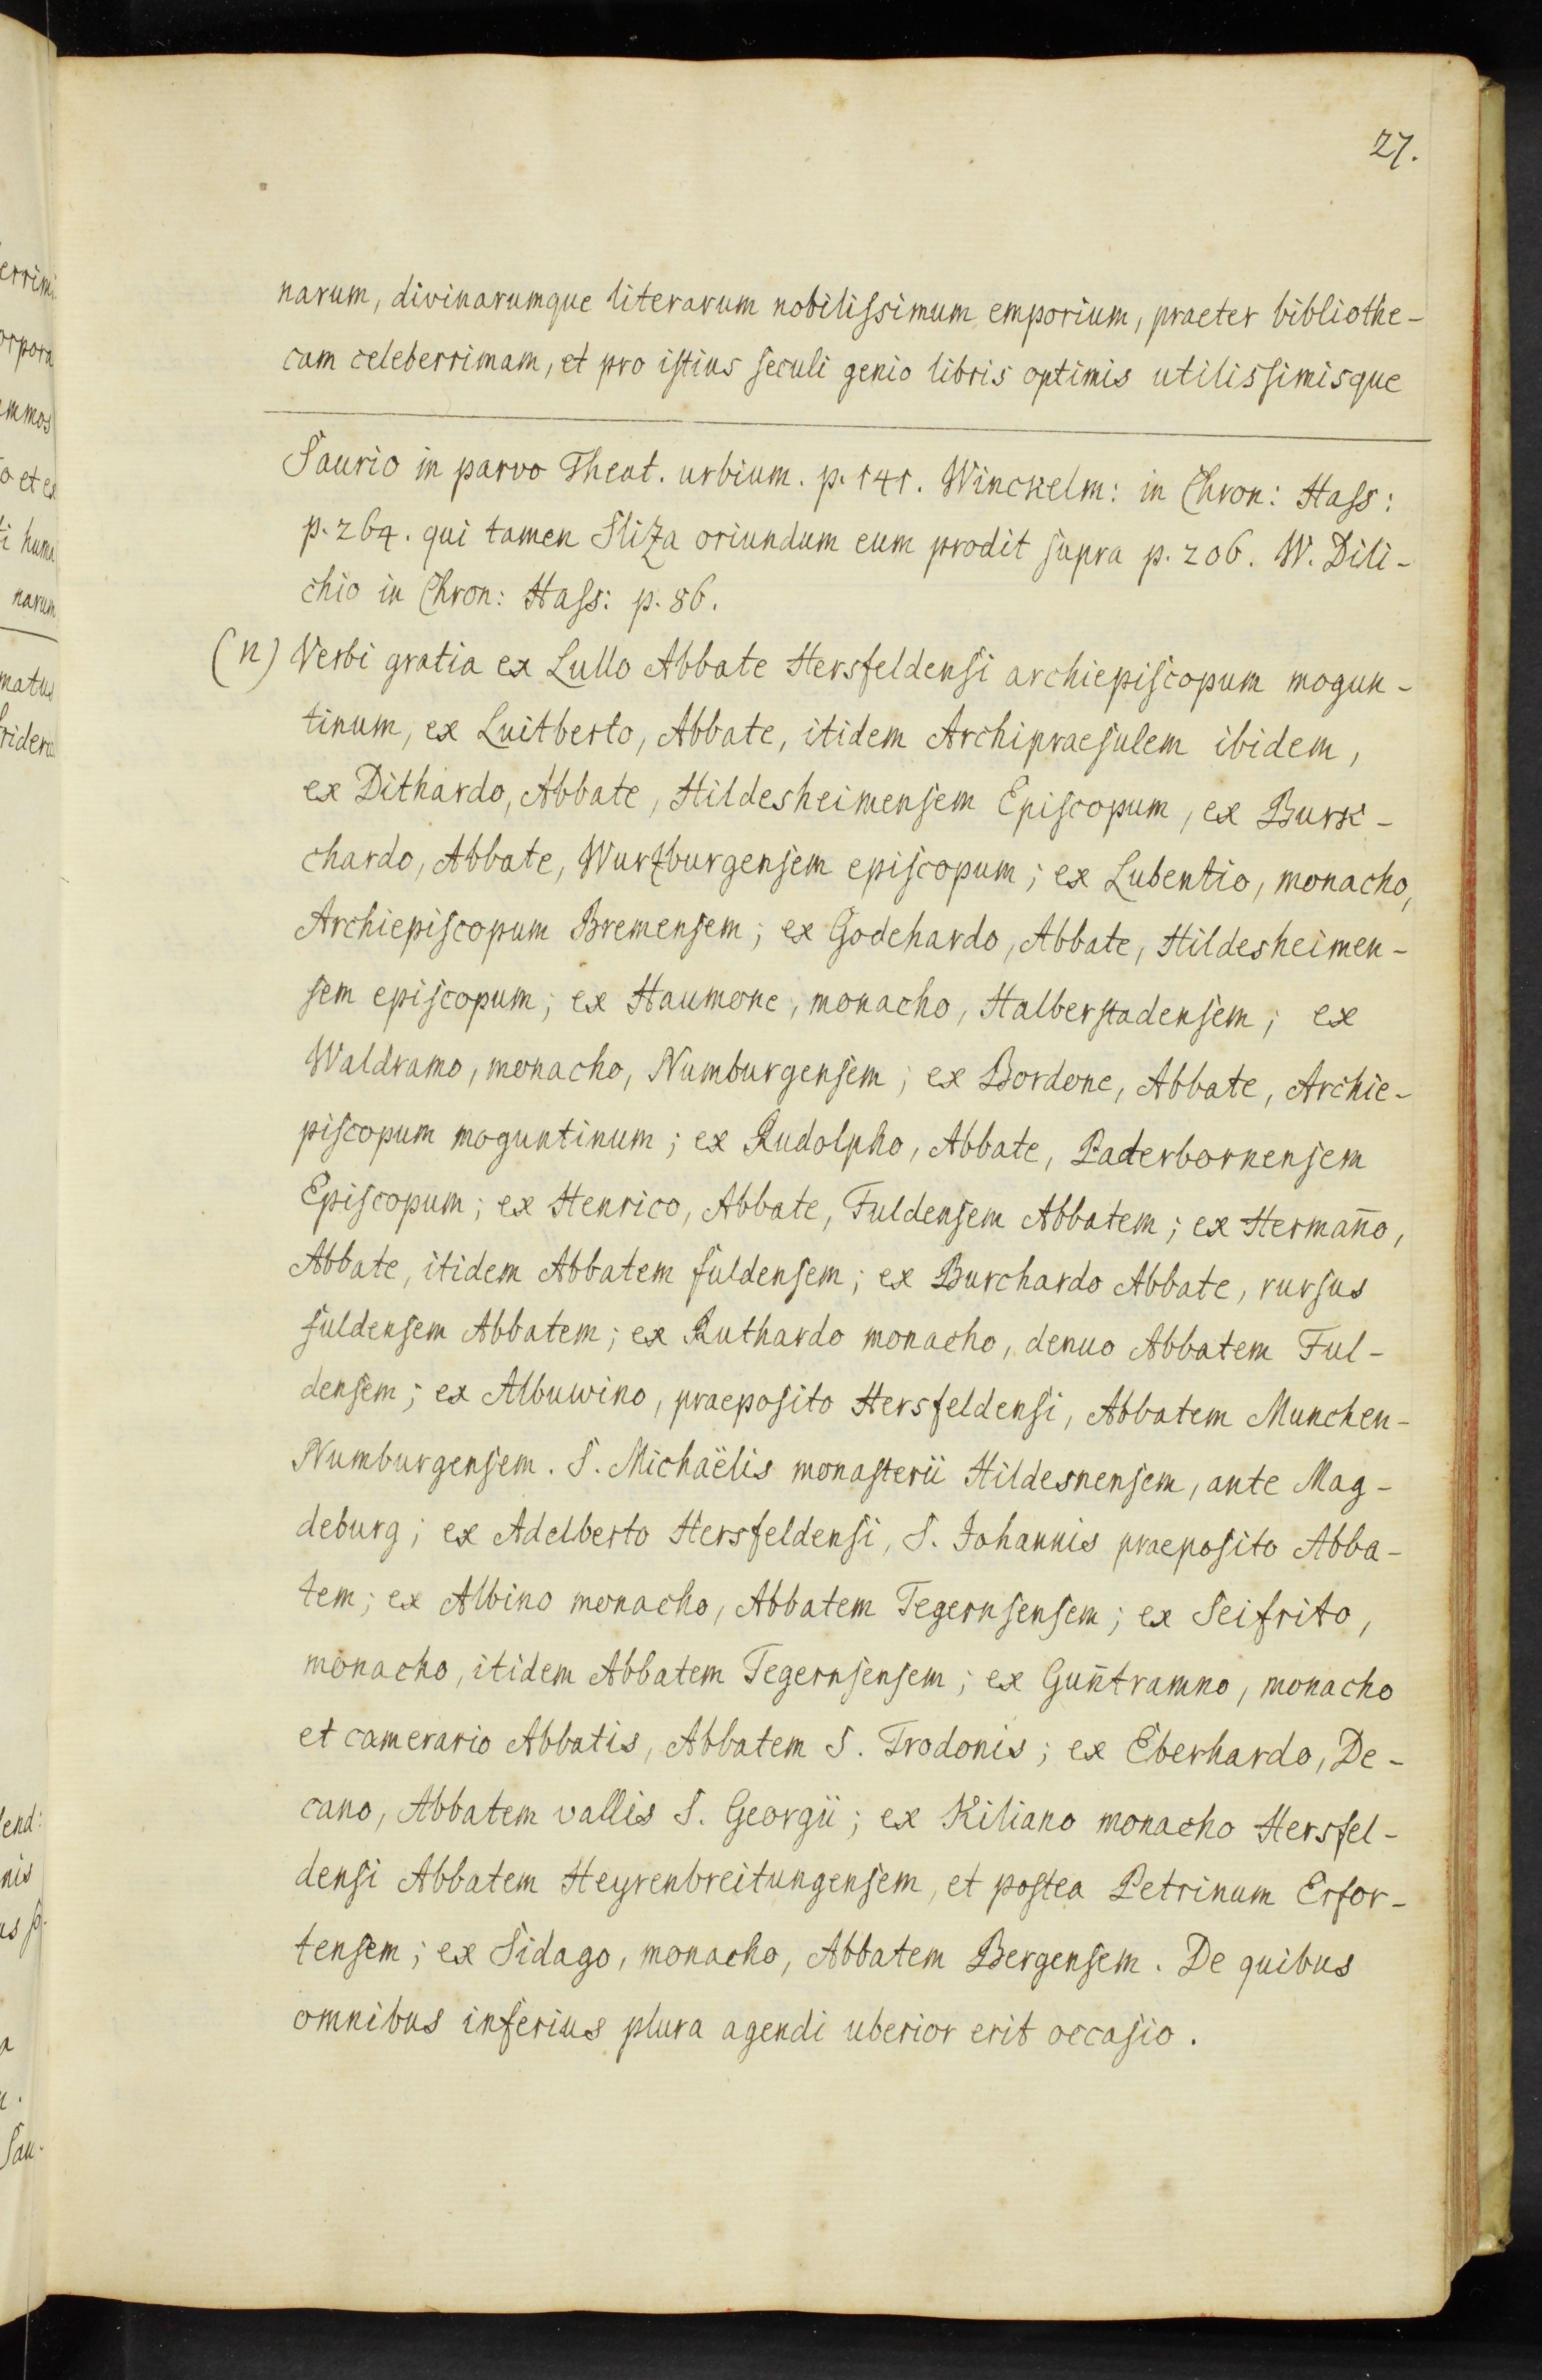 27.
narum, divinarumque literarum nobilissimum emporium, praeter bibliothe-
cam celeberrimam, et pro istius seculi genio libris optimis utilissimisque
Saurio in parvo Theat. urbium. p. 141. Winckelm: in Chron: Hass:
p. 264. qui tamen Sliza oriundum eum prodit supra p. 206. W. Dili-
chio in Chron: Hass: p. 86.
(n) Verbi gratia ex Lullo Abbate Hersfeldensi archiepiscopum mogun-
tinum, ex Luitberto, Abbate, itidem Archipraesulem ibidem,
ex Dithardo, Abbate, Hildesheimensem Episcopum, ex Burk-
chardo, Abbate, Wurzburgensem episcopum; ex Lubentio, monacho,
Archiepiscopum Bremensem; ex Godehardo, Abbate, Hildesheimen-
sem episcopum; ex Haumone, monacho, Halberstadensem; ex
Waldramo, monacho, Numburgensem; ex Bordone, Abbate, Archie-
piscopum moguntinum; ex Rudolpho, Abbate, Paderbornensem
Episcopum; ex Henrico, Abbate, Fuldensem Abbatem; ex Hermano,
Abbate, itidem Abbatem fuldensem; ex Burchardo Abbate, rursus
fuldensem Abbatem; ex Ruthardo monacho, denuo Abbatem Ful-
densem; ex Albuwino, praeposito Hersfeldensi, Abbatem Munchen-
Numburgensem. S. Michaëlis monasterii Hildesnensem, ante Mag-
deburg; ex Adelberto Hersfeldensi, S. Johannis praeposito Abba-
tem; ex Albino monacho, Abbatem Tegernsensem; ex Seifrito,
monacho, itidem Abbatem Tegernsensem; ex Guntramno, monacho
et camerario Abbatis, Abbatem S. Trodonis; ex Eberhardo, De-
cano, Abbatem vallis S. Georgii; ex Kiliano monacho Hersfel-
densi Abbatem Heyrenbreitungensem, et postea Petrinum Erfor-
tensem; ex Sidago, monacho, Abbatem Bergensem. De quibus
omnibus inferius plura agendi uberior erit occasio.